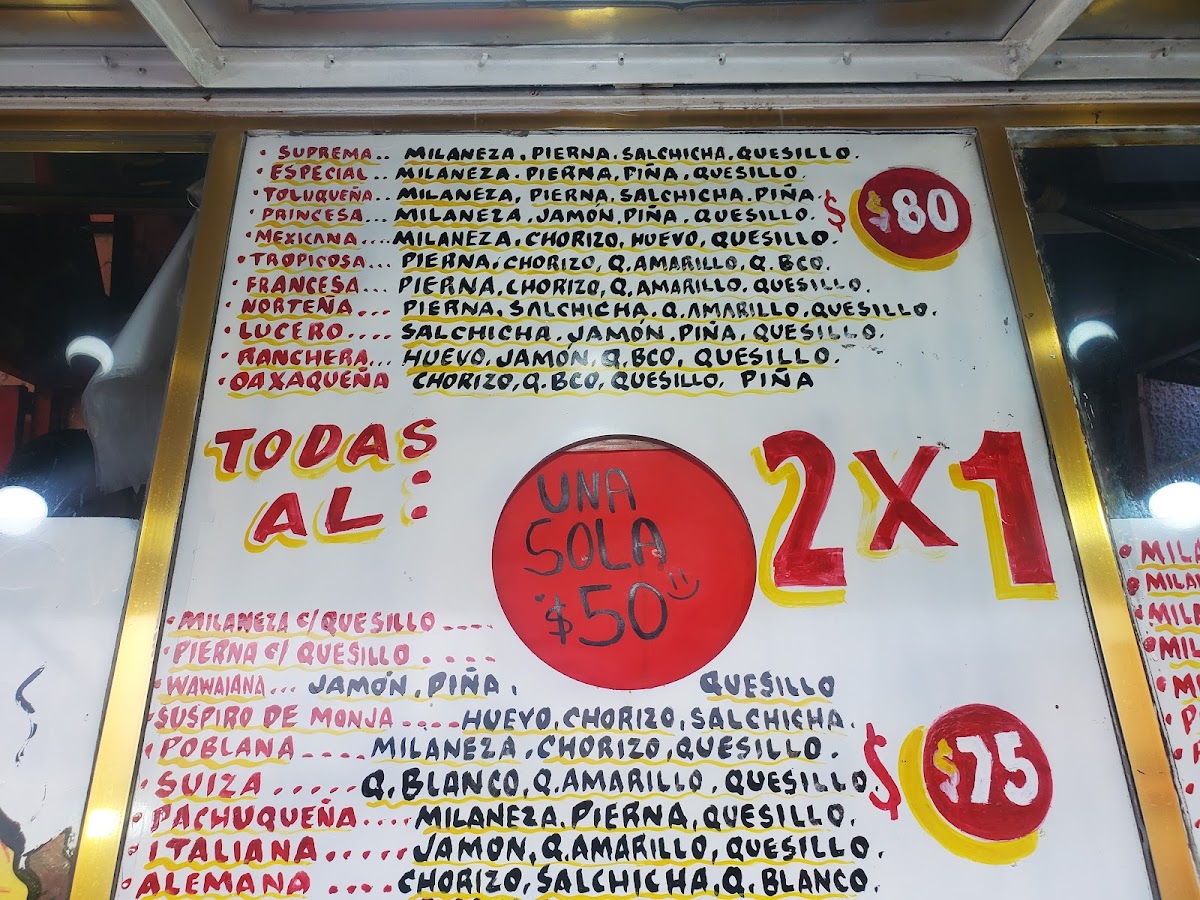 • SUPREMA.. MILANEZA, PIERNA, SALCHICHA, QUESILLO.
• ESPECIAL.. MILANEZA. PIERNA, PIÑA, QUESILLO.
• TOLUQUEÑA.. MILANEZA, PIERNA, SALCHICHA, PIÑA.
• PRINCESA... MILANEZA, JAMÓN, PIÑA, QUESILLO.
• MEXICANA.... MILANEZA, CHORIZO, HUEVO, QUESILLO.
$ $80
• TROPICOSA... PIERNA, CHORIZO, Q.AMARILLO, Q.BCO.
• FRANCESA... PIERNA, CHORIZO, Q.AMARILLO, QUESILLO.
• NORTEÑA... PIERNA, SALCHICHA, Q.AMARILLO, QUESILLO.
• LUCERO.... SALCHICHA, JAMÓN, PIÑA, QUESILLO.
• RANCHERA... HUEVO, JAMÓN, Q.BCO, QUESILLO.
• OAXAQUEÑA CHORIZO, Q.BCO, QUESILLO, PIÑA
TODAS
AL:
UNA
SOLA
$50
2X1
• MILANEZA C/QUESILLO ....
• PIERNA C/ QUESILLO ....
• WAWAIANA... JAMÓN, PIÑA, QUESILLO
• SUSPIRO DE MONJA .... HUEVO, CHORIZO, SALCHICHA.
• POBLANA .... MILANEZA, CHORIZO, QUESILLO.
• SUIZA ..... Q.BLANCO, Q.AMARILLO, QUESILLO
$ $75
• PACHUQUEÑA .... MILANEZA, PIERNA, QUESILLO.
• ITALIANA ..... JAMON, Q.AMARILLO, QUESILLO.
• ALEMANA .... CHORIZO, SALCHICHA, Q.BLANCO.